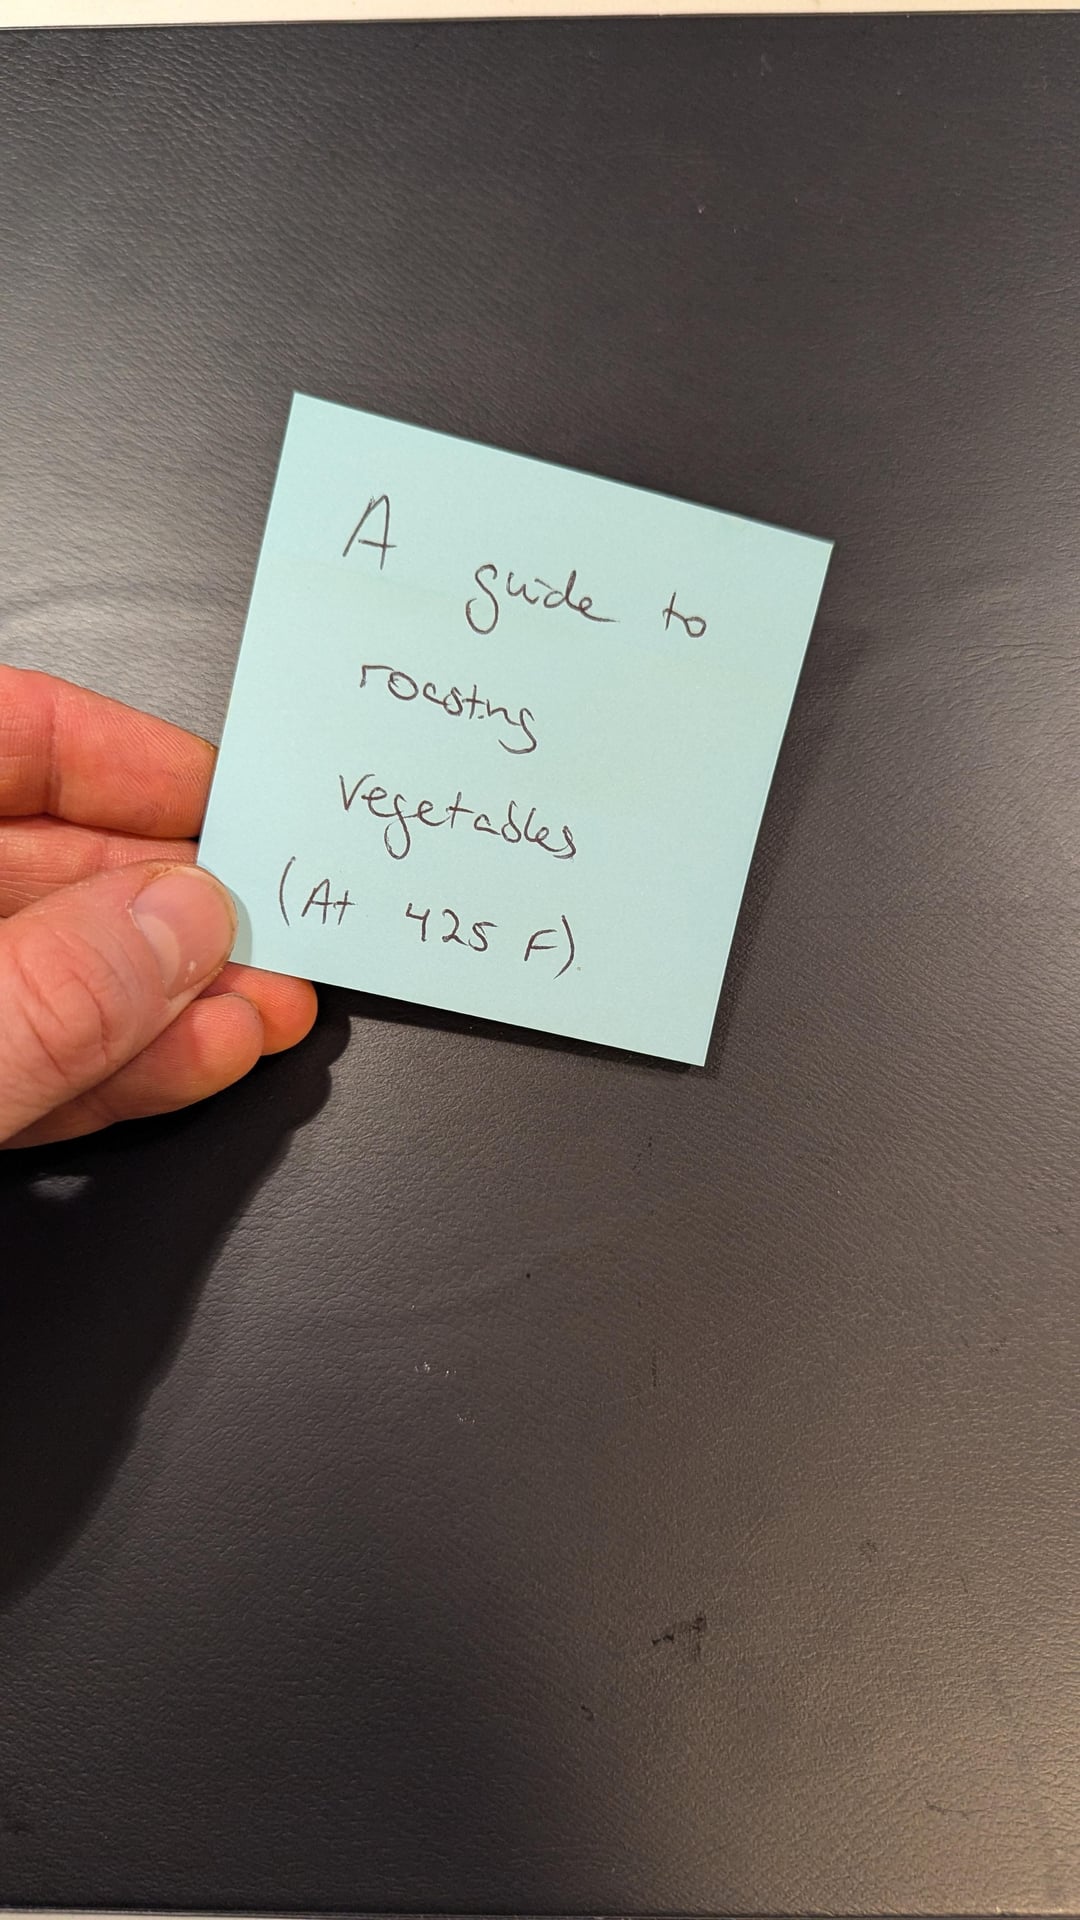 A guide to
roasting
vegetables
(At 425 F).